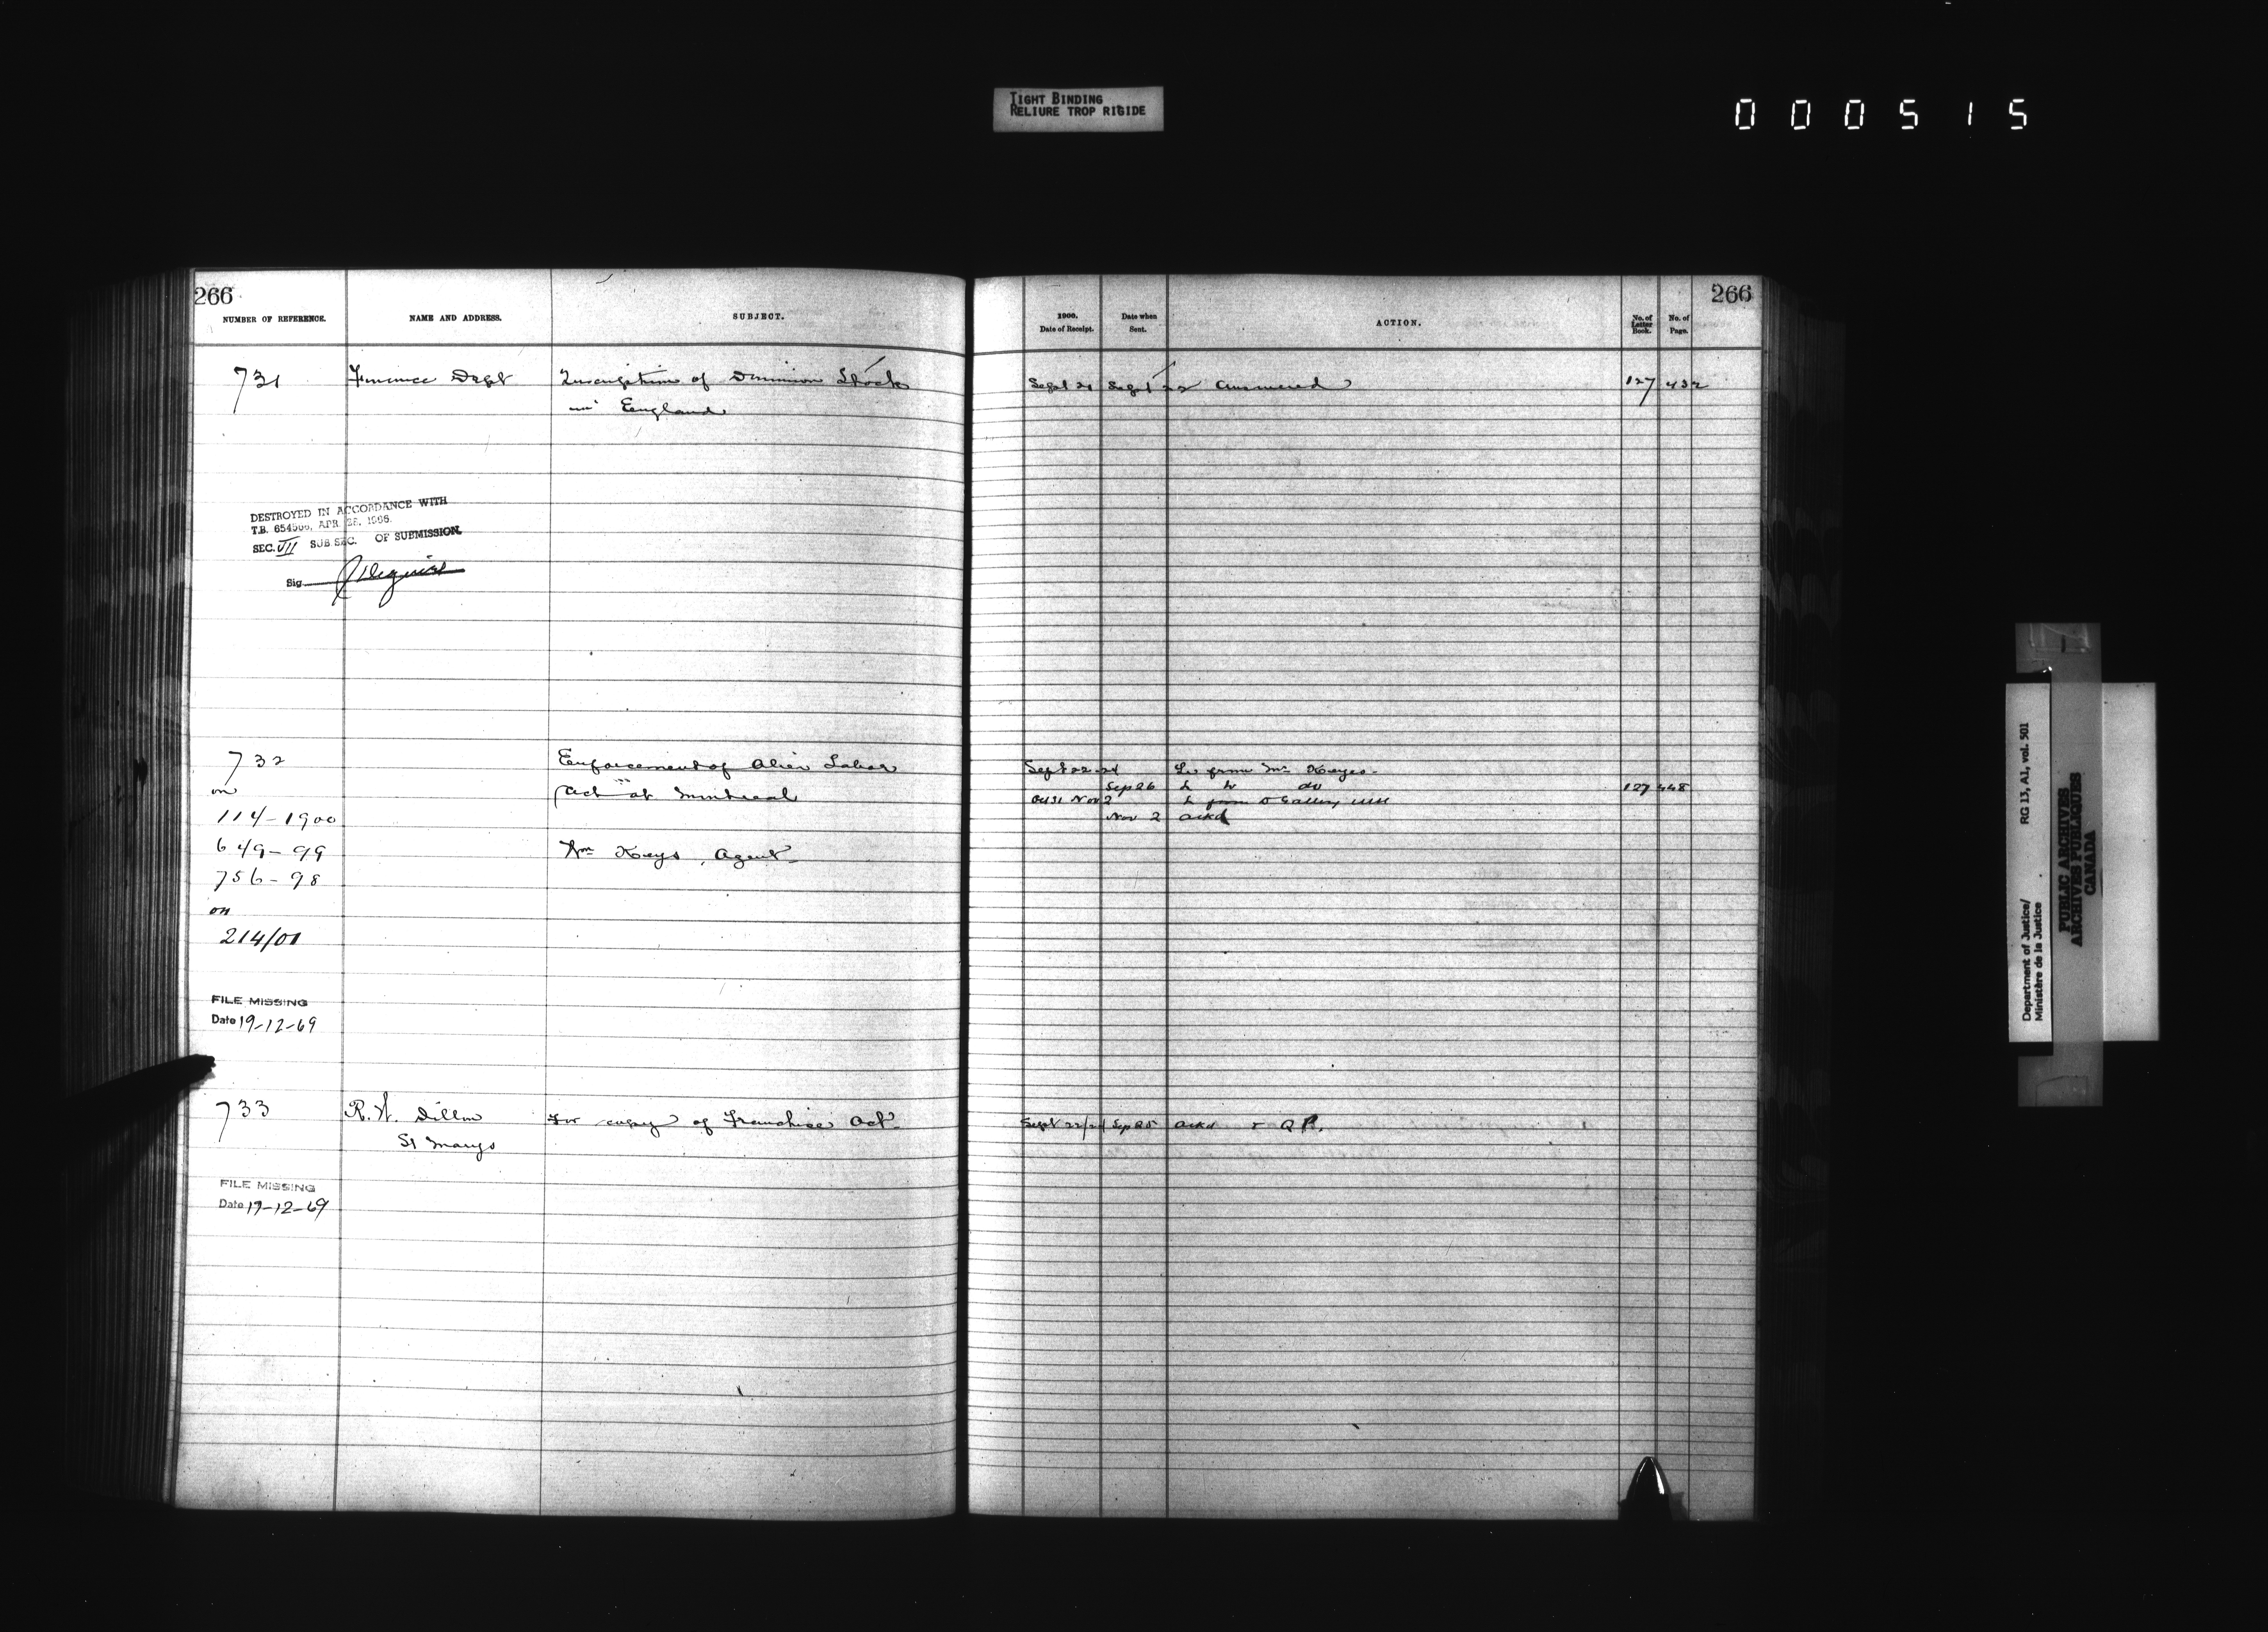 TIGHT BINDING
RELIURE TROP RIGIDE
000515
266
NUMBER OF REFERENCE. NAME AND ADDRESS. SUBJECT.
731 Finance Dept Inscription of Dominion Stock
in England
DESTROYED IN ACCORDANCE WITH
T.B. 654506, APR. 28, 1966.
SEC. VII SUB SEC. OF SUBMISSION.
Sig
732 Enforcement of Alien Labor
on Act at Montreal
114-1900
649-99 Wm Keys, Agent
756-98
on
214/01
FILE MISSING
Date 19-12-69
733 R.W. Dillon For copy of Franchise Act
St Marys
FILE MISSING
Date 19-12-69
266
1900. Date of Receipt. Date when Sent. ACTION. No. of Letter Book. No. of Page.
Sept 21 Sept 22 Answered 127 432
Sept 22-24 L. from Mr Keyes
Sep 26 L to do 127 448
Oct 31 Nov 2 L from
Nov 2 Ackd
Sept 22/24 Sep 25 Ackd & Q P.
Department of Justice/ RG 13, A1, vol. 501
Ministère de la Justice
PUBLIC ARCHIVES
ARCHIVES PUBLIQUES
CANADA